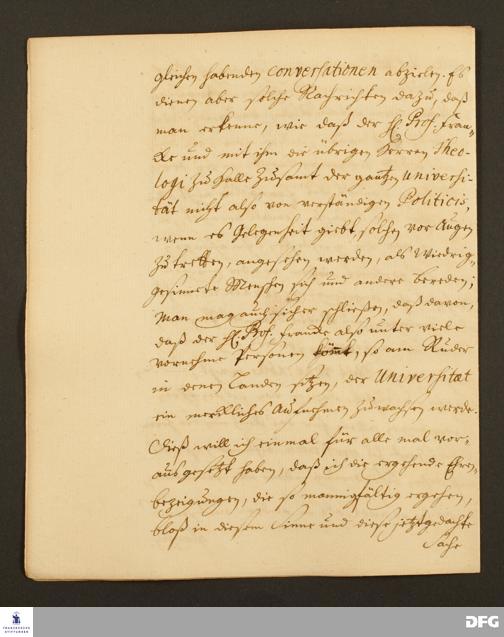 gleichen habenden Conversationen abzielen. Es
dienen aber solche Nachrichten dazu, daß
man erkenne, wie daß der H. Prof. Fran-
ke und mit ihm die übrigen Herren Theo-
logi zu Halle zusamt der gantzen Universi-
tät nicht also von verständigen Politicis,
wenn es Gelegenheit giebt, solchen vor Augen
zu treten, angesehen werden, als Wiedrig-
gesinnete Menschen sich und andere bereden;
Man mag auch sicher schließen, daß davon,
daß der H. Prof. Francke also unter viele
vornehme Personen kömt, so am Ruder
in denen Landen sitzen, der Universitaet
ein merckliches Aufnehmen zuwachsen werde.
Dieß will ich einmal für alle mal vor-
ausgesetzt haben, daß ich die ergehende Ehren-
bezeigungen, die so mannigfältig ergehen,
bloß in diesem Sinne und diese jetztgedachte
Sache
FRANCKESCHE
STIFTUNGEN
DFG